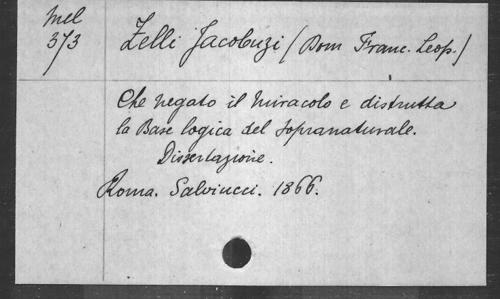 Mel
373
Zelli Jacobuzi (Dom Franc. Leop.)
Che negato il miracolo e distrutta
la Base logica del sopranaturale.
Dissertazione.
Roma. Salviucci. 1866.